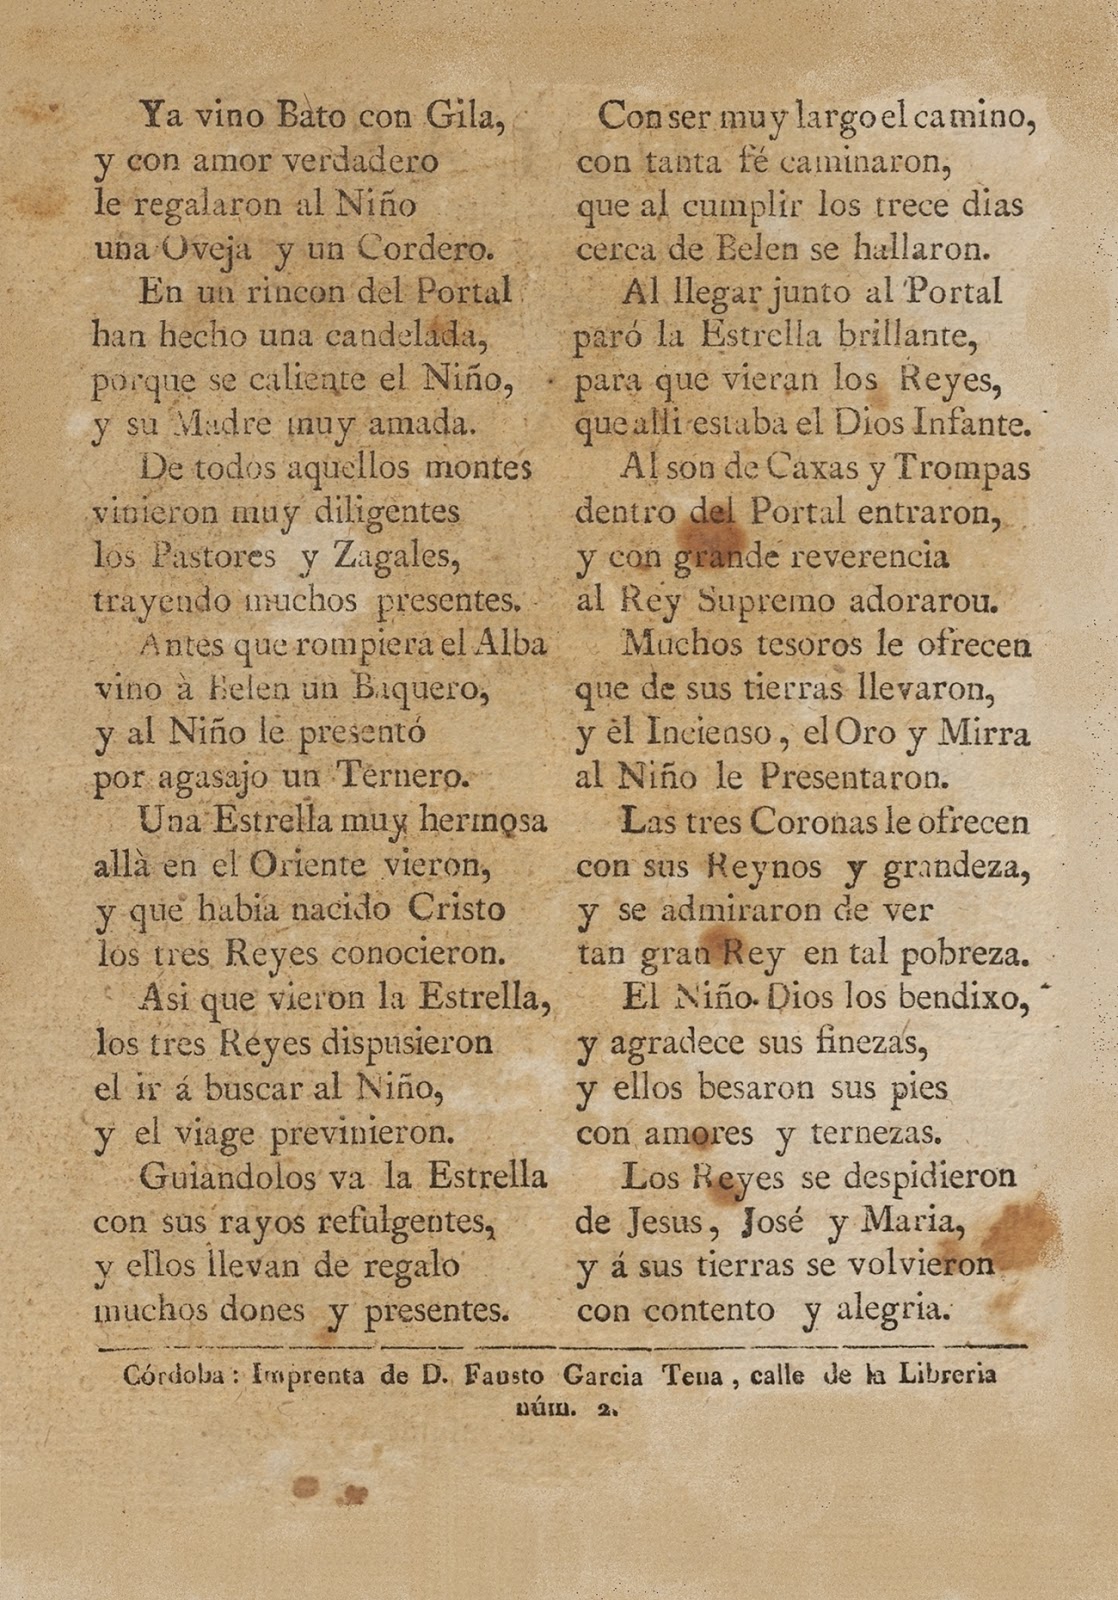 Ya vino Bato con Gila,
y con amor verdadero
le regalaron al Niño
una Oveja y un Cordero.
En un rincon del Portal
han hecho una candelada,
porque se caliente el Niño,
y su Madre muy amada.
De todos aquellos montes
vinieron muy diligentes
los Pastores y Zagales,
trayendo muchos presentes.
Antes que rompiera el Alba
vino à Belen un Baquero,
y al Niño le presentó
por agasajo un Ternero.
Una Estrella muy hermosa
allà en el Oriente vieron,
y que habia nacido Cristo
los tres Reyes conocieron.
Asi que vieron la Estrella,
los tres Reyes dispusieron
el ir á buscar al Niño,
y el viage previnieron.
Guiandolos va la Estrella
con sus rayos refulgentes,
y ellos llevan de regalo
muchos dones y presentes.
Con ser muy largo el camino,
con tanta fé caminaron,
que al cumplir los trece dias
cerca de Belen se hallaron.
Al llegar junto al Portal
paró la Estrella brillante,
para que vieran los Reyes,
que alli estaba el Dios Infante.
Al son de Caxas y Trompas
dentro del Portal entraron,
y con grande reverencia
al Rey Supremo adorarou.
Muchos tesoros le ofrecen
que de sus tierras llevaron,
y èl Incienso, el Oro y Mirra
al Niño le Presentaron.
Las tres Coronas le ofrecen
con sus Reynos y grandeza,
y se admiraron de ver
tan gran Rey en tal pobreza.
El Niño Dios los bendixo,
y agradece sus finezas,
y ellos besaron sus pies
con amores y ternezas.
Los Reyes se despidieron
de Jesus, José y Maria,
y á sus tierras se volvieron
con contento y alegria.
Córdoba: Imprenta de D. Fausto Garcia Tena, calle de la Libreria
núm. 2.